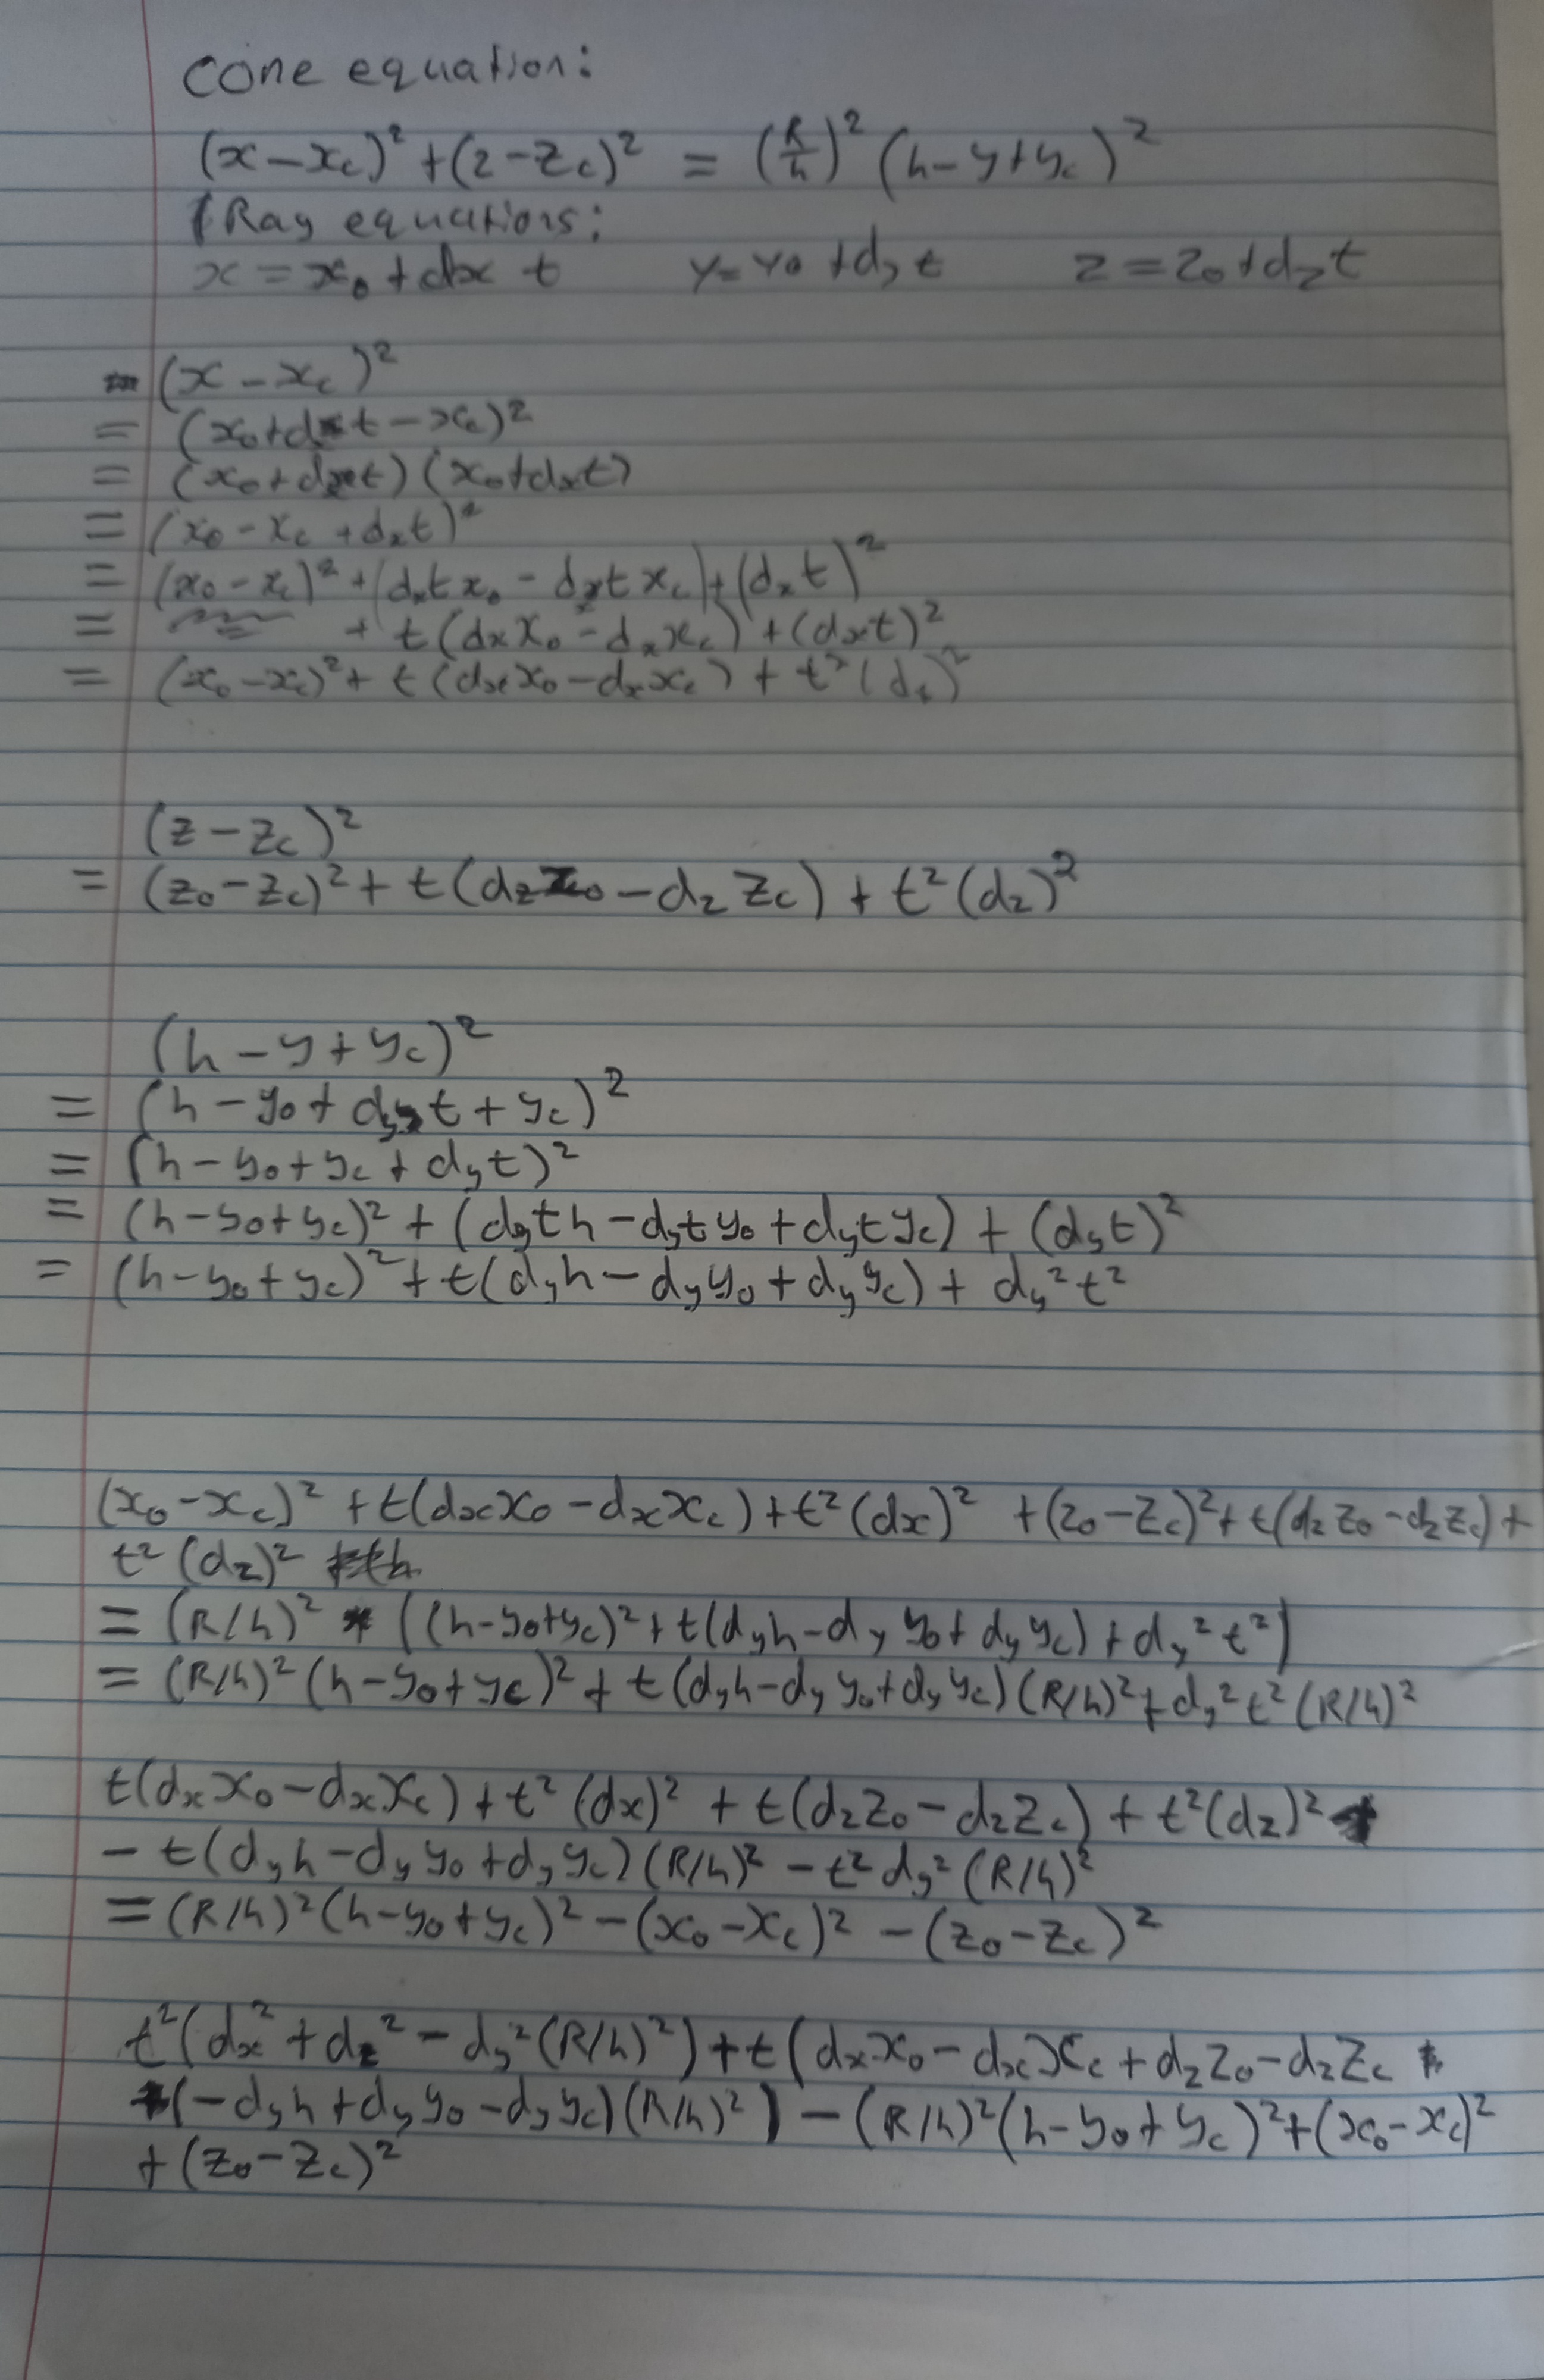 Cone equation:
(x-x_c)² + (z-z_c)² = (R/h)² (h-y+y_c)²
Ray equations:
x = x₀ + dx t y = y₀ + d_y t z = z₀ + d_z t
(x - x_c)²
= (x₀ + d_x t - x_c)²
= (x₀ + d_x t) (x₀ + d_x t)
= (x₀ - x_c + d_x t)²
= (x₀ - x_c)² + (d_x t x₀ - d_x t x_c) + (d_x t)²
= + t(d_x x₀ - d_x x_c) + (d_x t)²
= (x₀ - x_c)² + t(d_x x₀ - d_x x_c) + t²(d_x)²
(z - z_c)²
= (z₀ - z_c)² + t(d_z z₀ - d_z z_c) + t²(d_z)²
(h - y + y_c)²
= (h - y₀ + d_y t + y_c)²
= (h - y₀ + y_c + d_y t)²
= (h - y₀ + y_c)² + (d_y t h - d_y t y₀ + d_y t y_c) + (d_y t)²
= (h - y₀ + y_c)² + t(d_y h - d_y y₀ + d_y y_c) + d_y² t²
(x₀ - x_c)² + t(d_x x₀ - d_x x_c) + t²(dx)² + (z₀ - z_c)² + t(d_z z₀ - d_z z_c) +
t² (d_z)²
= (R/h)² * ((h - y₀ + y_c)² + t(d_y h - d_y y₀ + d_y y_c) + d_y² t²)
= (R/h)² (h - y₀ + y_c)² + t(d_y h - d_y y₀ + d_y y_c)(R/h)² + d_y² t² (R/h)²
t(d_x x₀ - d_x x_c) + t² (dx)² + t(d_z z₀ - d_z z_c) + t²(d_z)²
- t(d_y h - d_y y₀ + d_y y_c)(R/h)² - t² d_y² (R/h)²
= (R/h)² (h - y₀ + y_c)² - (x₀ - x_c)² - (z₀ - z_c)²
t²(dx² + d_z² - d_y² (R/h)²) + t(d_x x₀ - d_x x_c + d_z z₀ - d_z z_c
+(-d_y h + d_y y₀ - d_y y_c)(R/h)²) - (R/h)² (h - y₀ + y_c)² + (x₀ - x_c)²
+ (z₀ - z_c)²